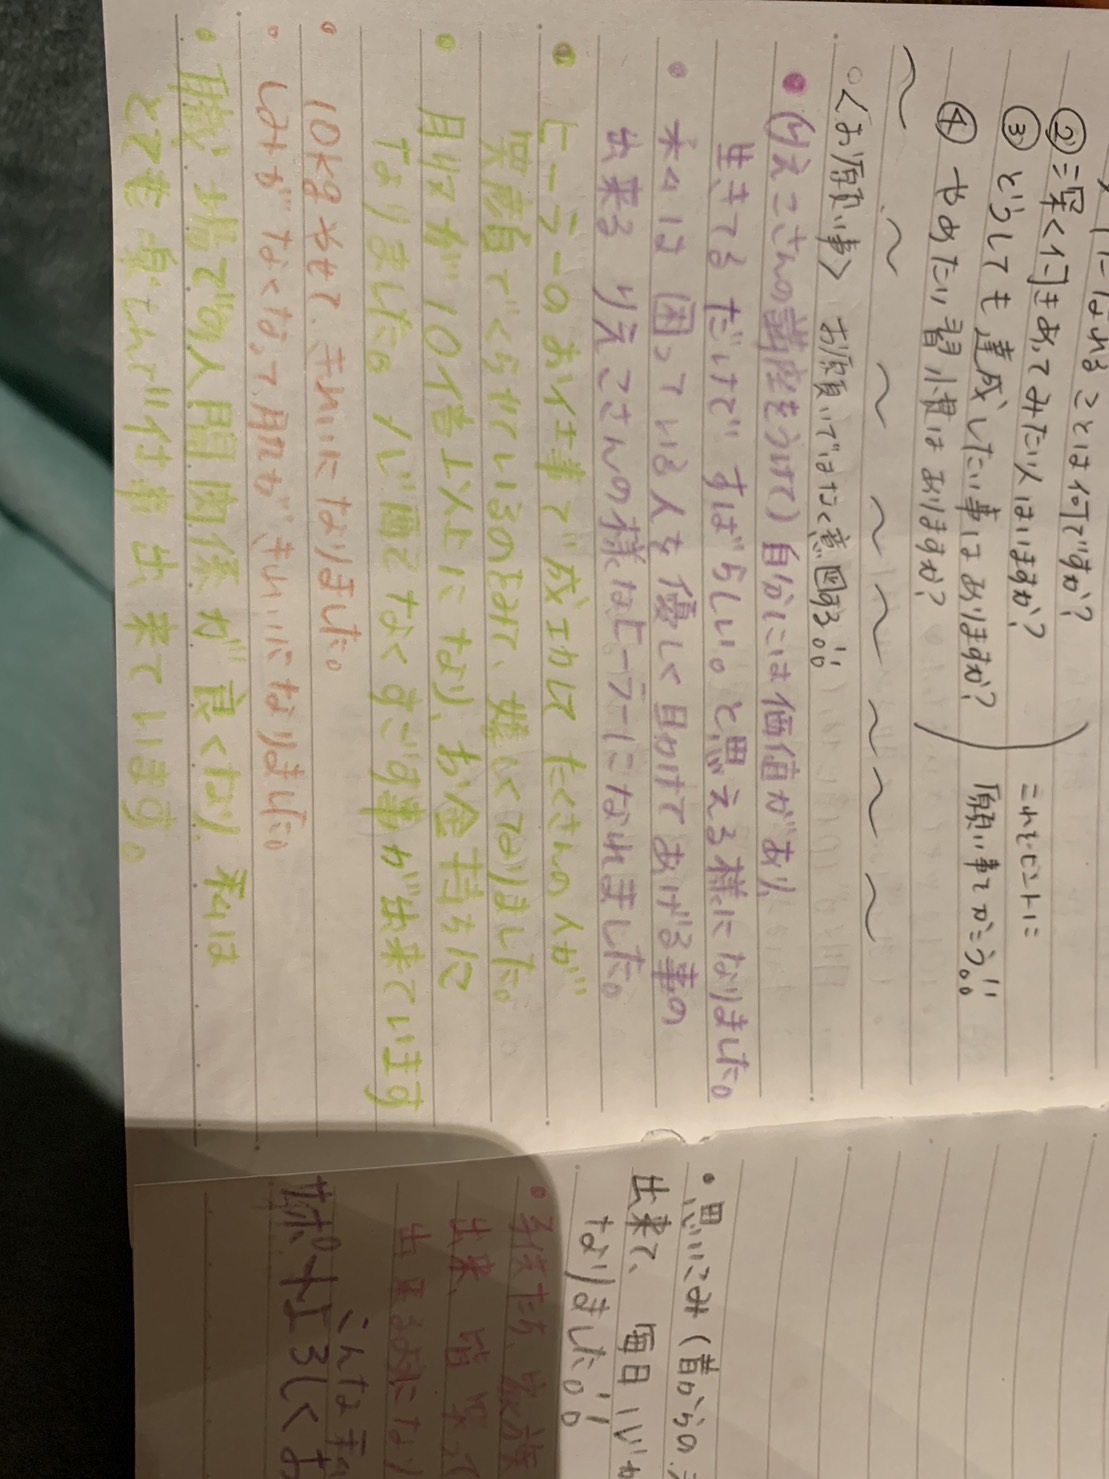 になれることは何ですか?
② 深く付きあってみたい人はいますか?
③ どうしても達成したい事はありますか?
④ やめたい習慣はありますか?
これをヒントに
願い事てがこう!!
〜 〜 〜 〜 〜 〜 〜 〜
○〈お願い事〉 お願いではなく意図する!!
• (りえこさんの講座をうけて) 自分には価値があり、
生きてるだけですばらしい。と思える様になりました。
• 私は困っている人を優しく助けてあげる事の
出来るりえこさんの様なヒーラーになれました。
• ヒーラーのお仕事で成功して たくさんの人が
笑顔でくらせているのをみて、嬉しくなりました。
• 月収が10倍以上になり、お金持ちに
なりました。 心配でなくすごす事が出来ています
• 10kgやせて、きれいになりました。
• しみがなくなって肌がきれいになりました。
• 職場での人間関係が良くなり 私は
とても楽しんで仕事出来ています。
• 思いこみ(昔からの
出来て、毎日心が
なりました!!
• 子供たち、家族
出来、皆 笑って
出来る様になり
こんな私
よろしくお